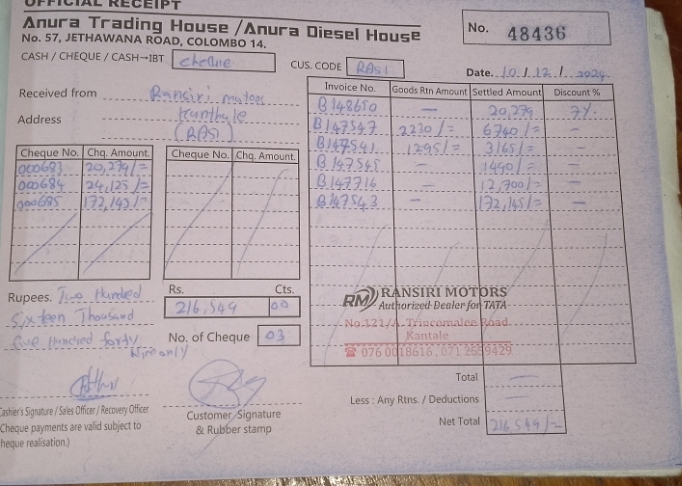 OFFICIAL RECEIPT
Anura Trading House / Anura Diesel House
No. 57, JETHAWANA ROAD, COLOMBO 14.
No. 48436
CASH / CHEQUE / CASH→IBT cheque
CUS. CODE RAS1
Date. 10/12/2024
Received from Ransiri motors
Address Kanthale
(RAS1)
Cheque No. Chq. Amount
000683 20,279/=
000684 24,125/=
000685 172,145/=
Cheque No. Chq. Amount
Invoice No. Goods Rtn Amount Settled Amount Discount %
B148650 — 20,279 7%
B147547 2230/= 6740/= —
B147541 1295/= 3165/= —
B147545 — 1490/= —
B147716 — 12,700/= —
B147543 — 172,145/= —
Rupees. Two Hundred
Sixteen Thousand
five Hundred forty
Nine only
Rs. Cts.
216,549 00
No. of Cheque 03
RM RANSIRI MOTORS
Authorized Dealer for TATA
No.121/A, Trincomalee Road,
Kantale
☎ 076 0018616, 071 2659429
Cashier's Signature / Sales Officer / Recovery Officer
Cheque payments are valid subject to
cheque realisation.)
Customer Signature
& Rubber stamp
Total —
Less : Any Rtns. / Deductions —
Net Total 216,549/=